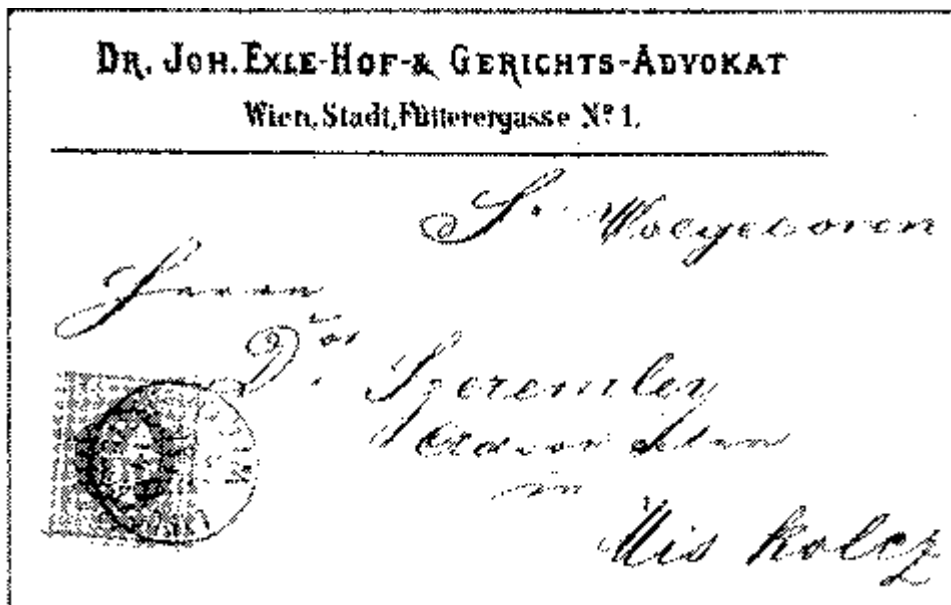 DR. JOH. EXLE-HOF-& GERICHTS-ADVOKAT
Wien, Stadt, Fütterergasse Nº 1.
Sr. Wolgeboren
Herrn
Dor. Szeremley
Advokaten
in
Miskolcz